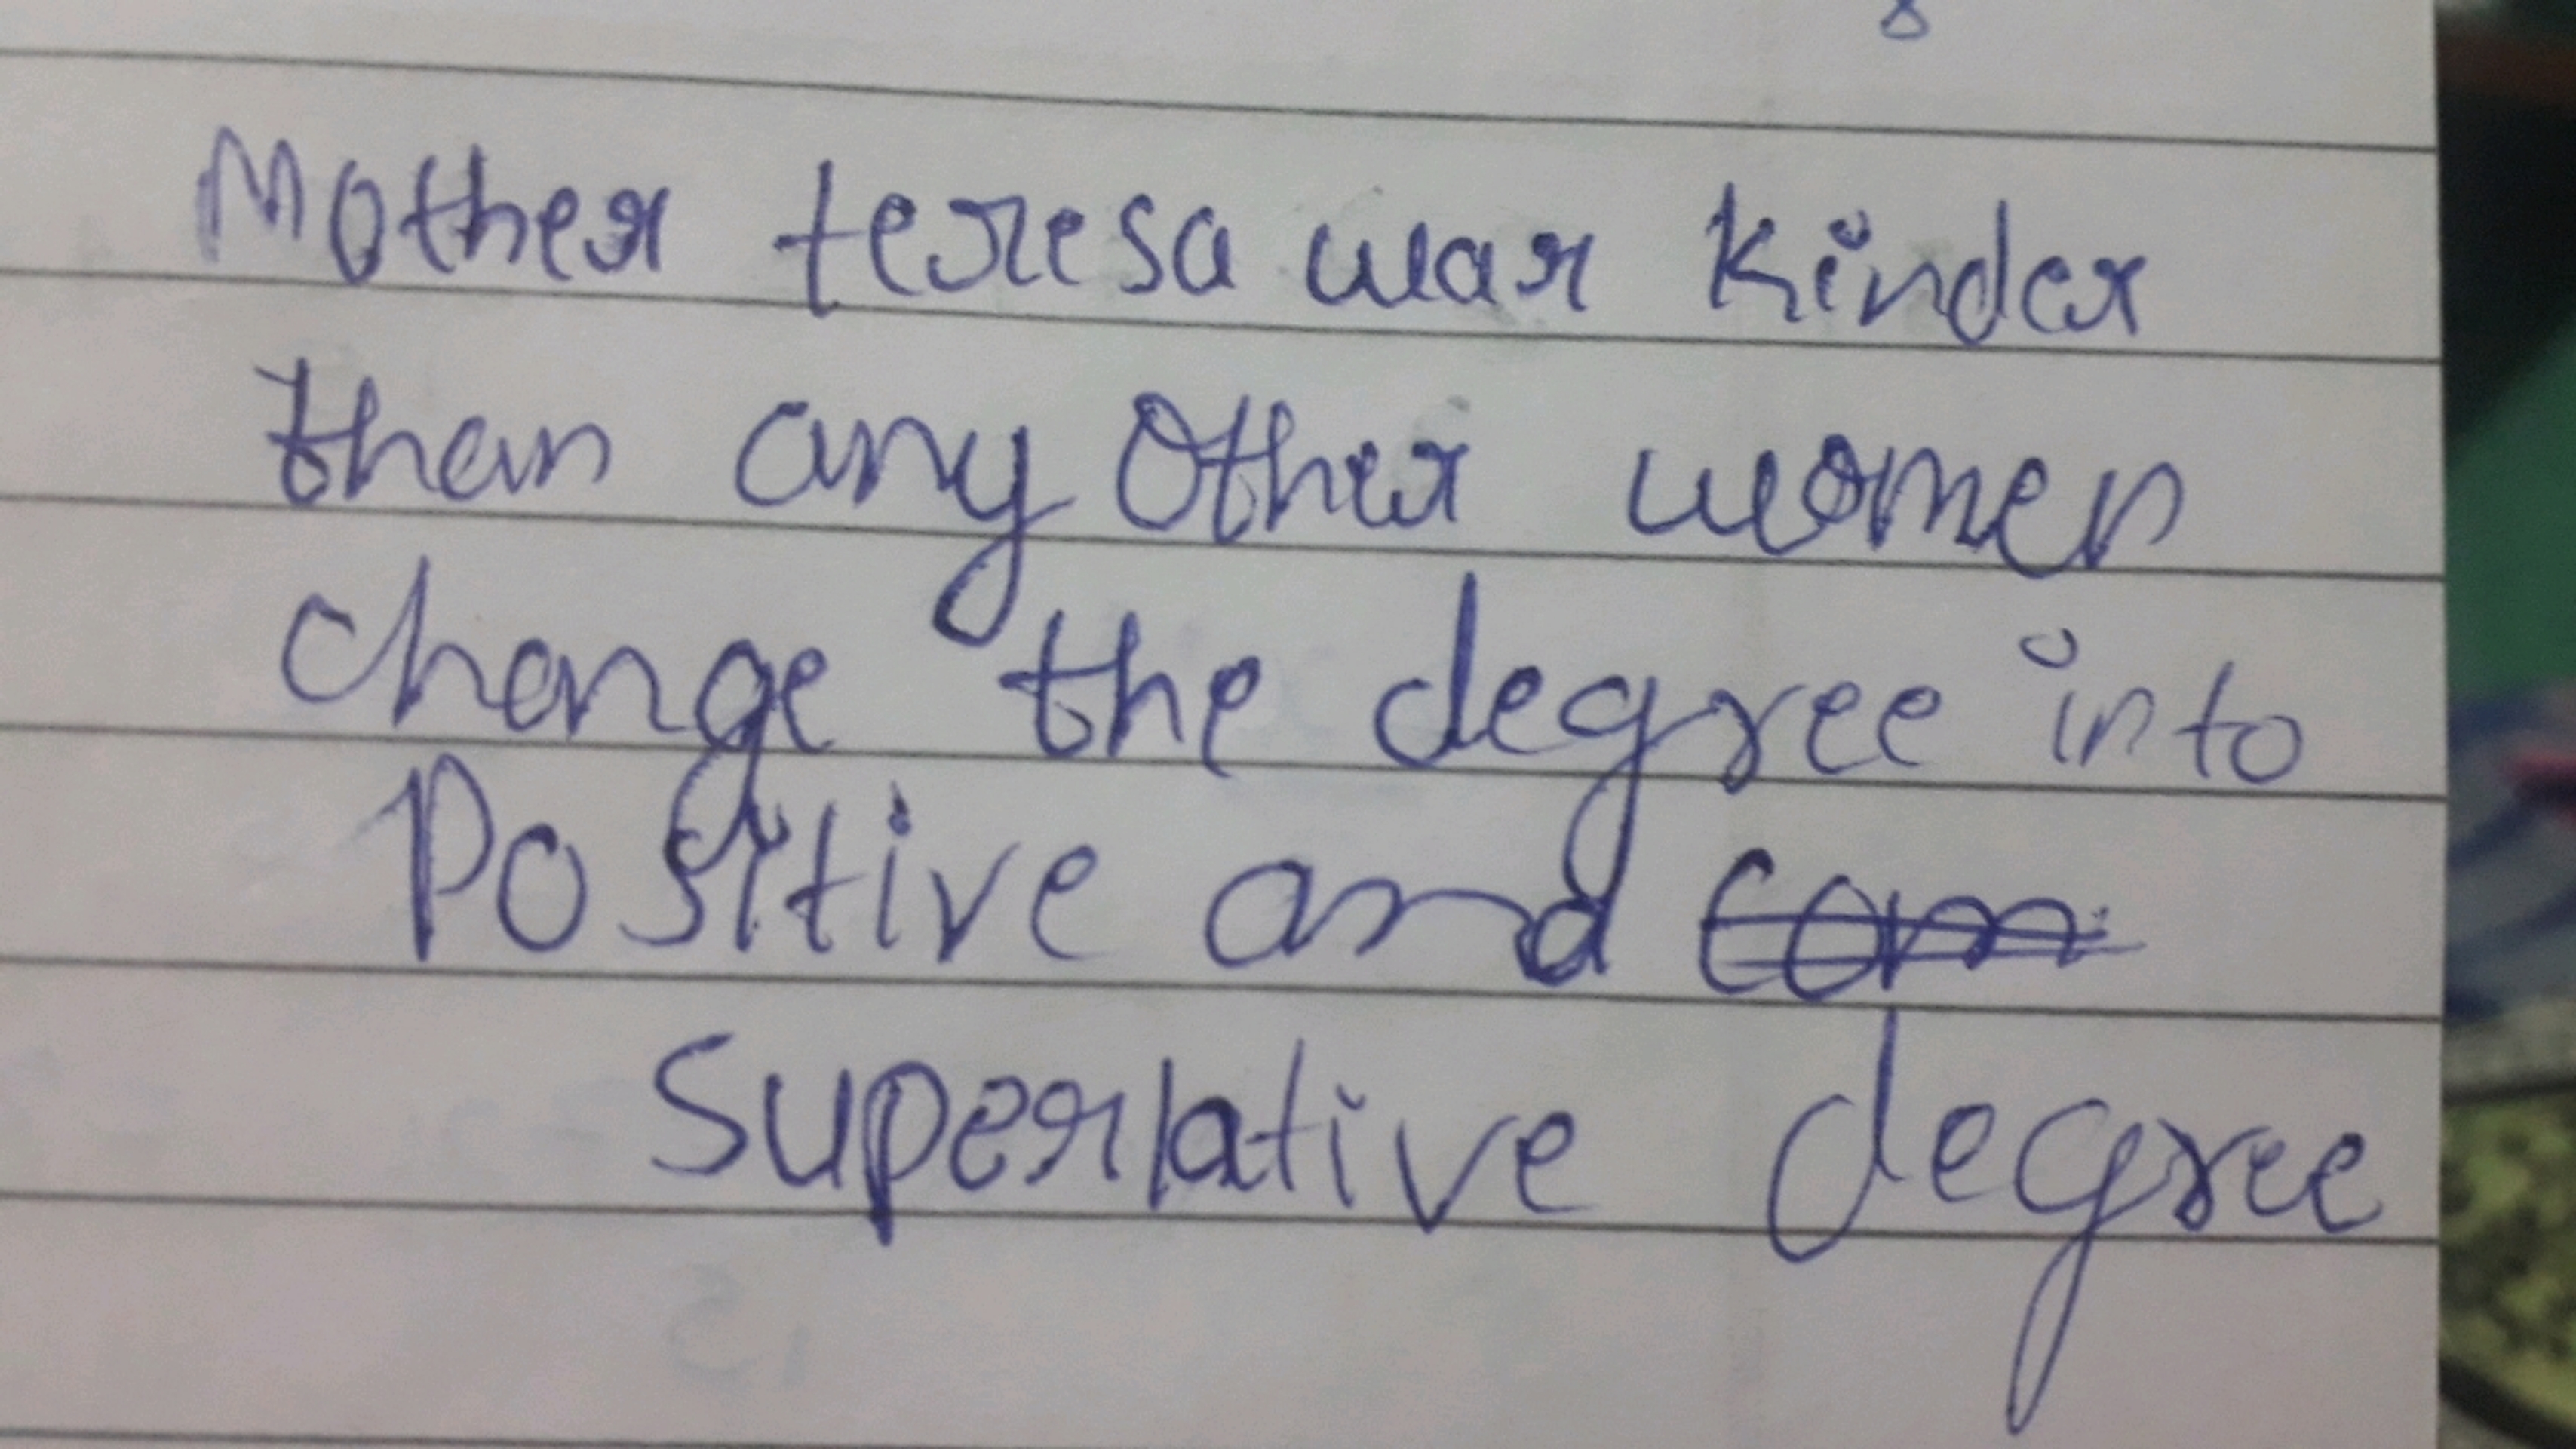 8
Mother teresa war kinder
than any other women
change the degree into
Positive and
Superlative degree